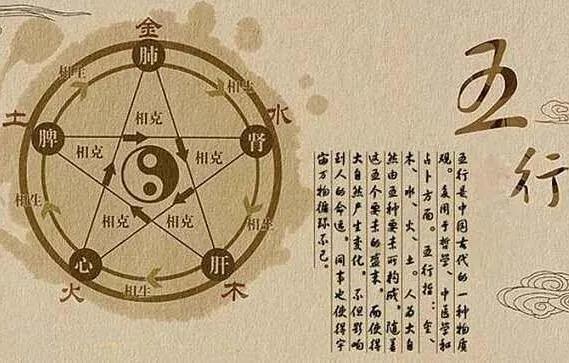 五行
五行是中国古代的一种物质
观。多用于哲学、中医学和
占卜方面。五行指：金、
木、水、火、土。人为大自
然由五种要素所构成，随着
这五个要素的盛衰，而使得
大自然产生变化，不但影响
到人的命运，同事也使得宇
宙万物循环不已。
金
肺
水
肾
木
肝
火
心
土
脾
相生
相生
相生
相生
相生
相克
相克
相克
相克
相克